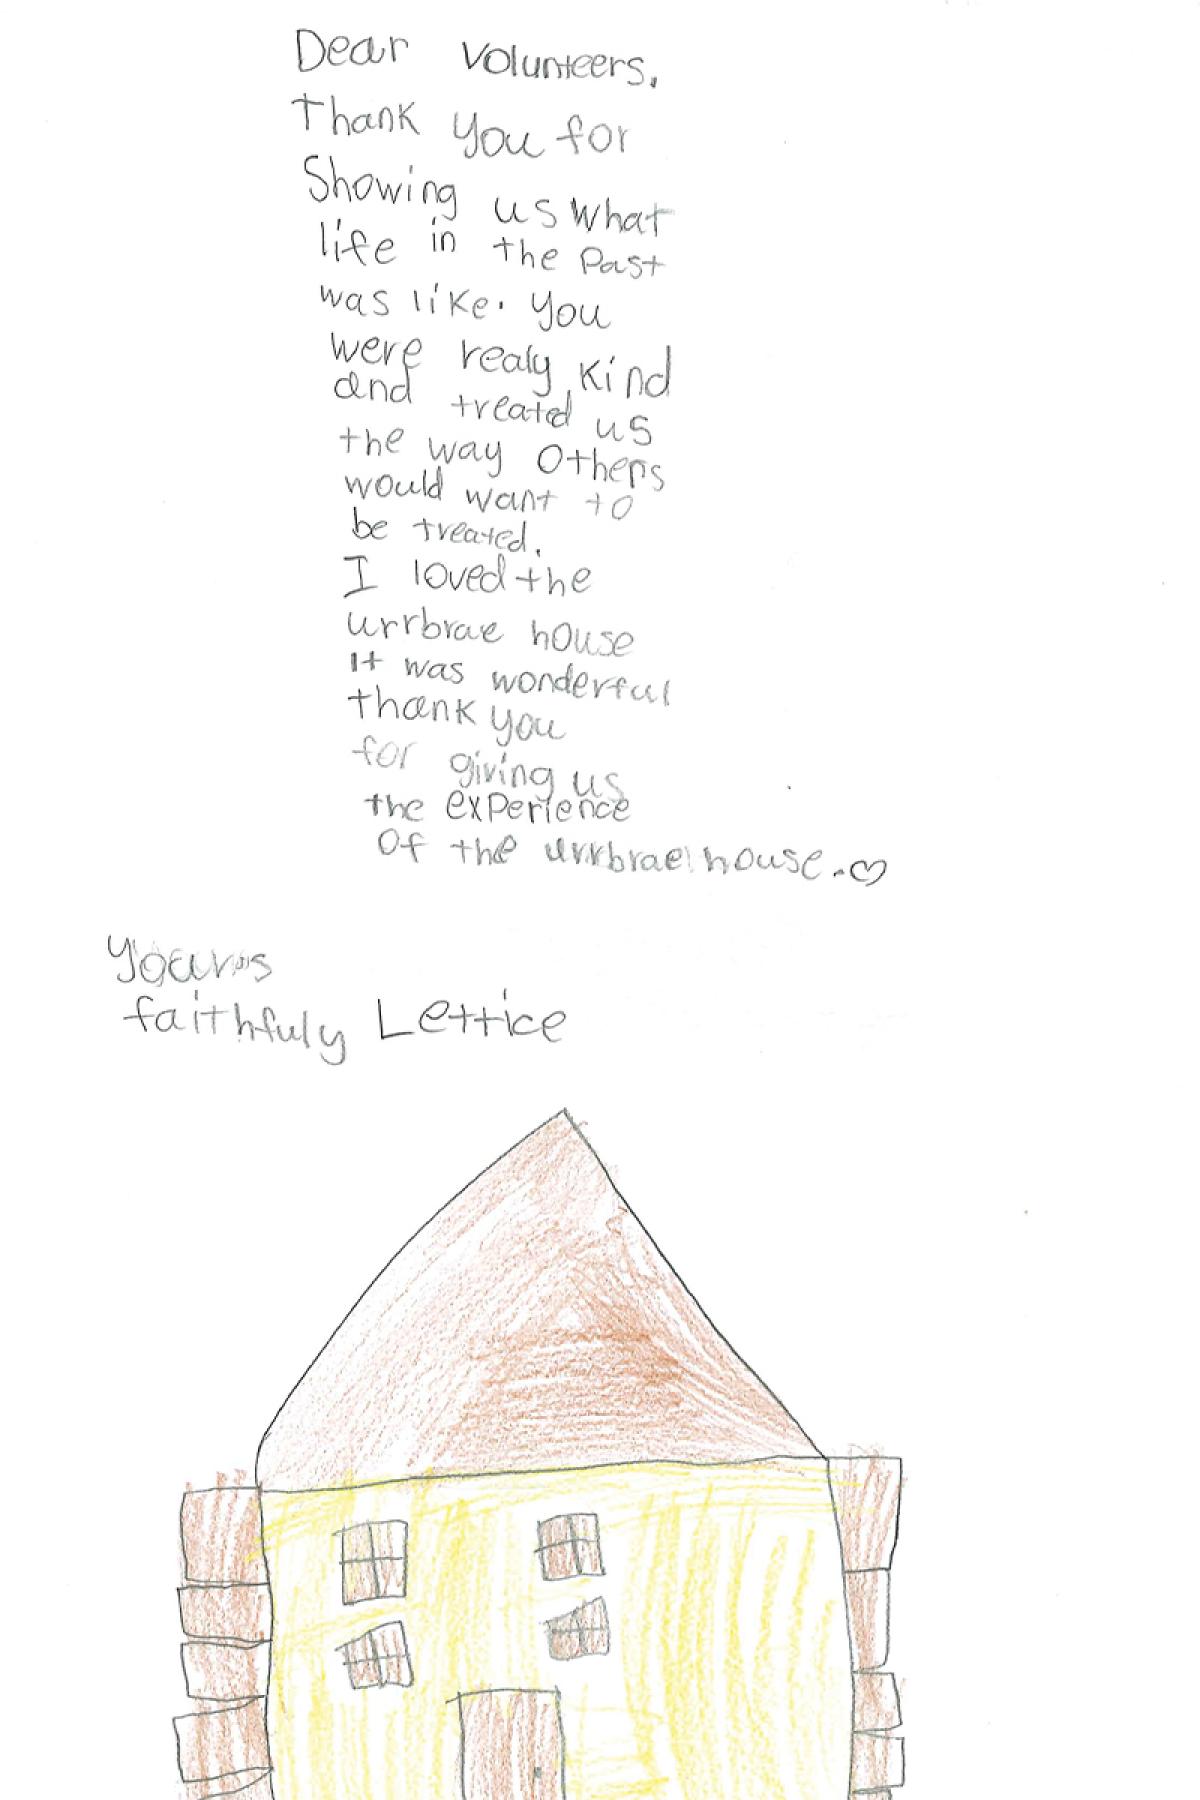 Dear Volunteers.
Thank you for
Showing us what
life in the past
was like. you
were realy kind
and treated us
the way others
would want to
be treated.
I loved the
urrbrae house
it was wonderful
thank you
for giving us
the experience
of the urrbrae house. ♡
Yours
faithfuly Lettice